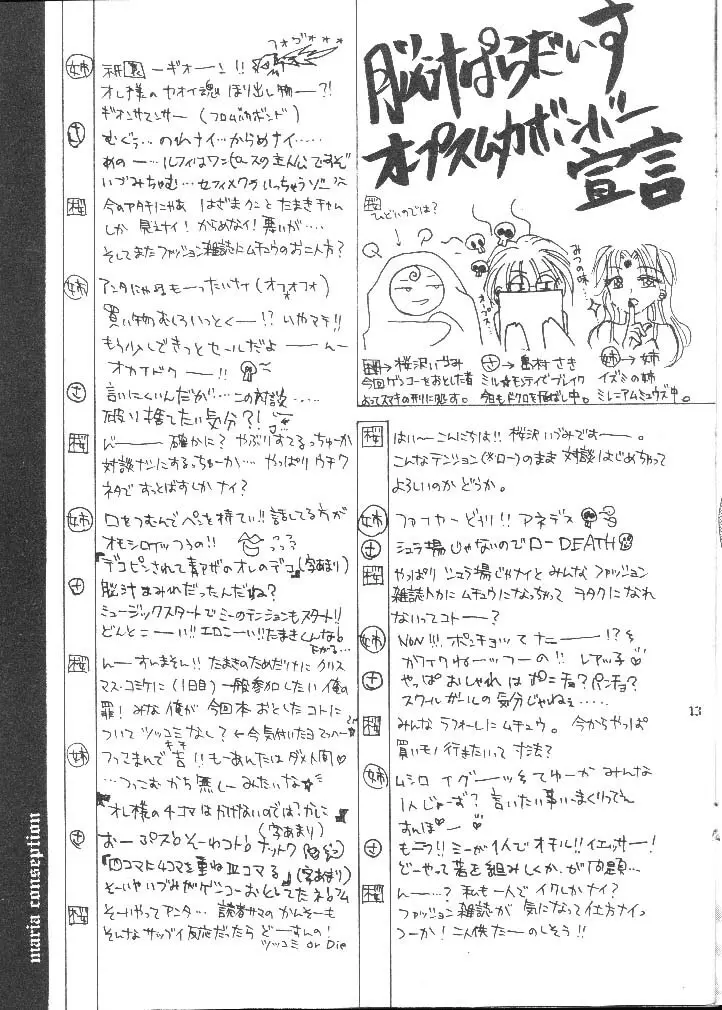 脳汁ぱらだいす
オプスムカボンバー
宣言
桜
ひどいのでは?
みつの味…
桜→桜沢いづみ
今回ゲンコーをおとした者
よってスマキの刑に処す。
さ→島村さき
ミル★モンティでブレイク
今日もドクロを飛ばし中。
姉→姉
イズミの姉
ミレニアムミュウズ中。
桜 はいーこんにちは!!桜沢いづみですー。
こんなテンション(※ロー)のまま対談はじめちゃって
よろしいのかどうか。
姉 ファイヤーどガリ!!アネデス
さ シュラ場じゃないのでローDEATH
桜 やっぱりシュラ場じゃナイとみんなファッション
雑誌トカにムチュウになっちゃってヲタクになれ
ないってコトー?
姉 NON!!!ポンチョってナニー!?
カワイクねーっつーの!!レアッ子♡
さ やっぱおしゃれはポンチョ?パンチョ?
スクールガールの気分じゃねぇ……
桜 みんなラフォーレにムチュウ。今からやっぱ
買いモノ行きたいって寸法?
姉 ムシロイグーッってゆーかみんな
1人じゃーず?言いたい事いいまくりってん
すんぽー♡
さ もこフ!!ミーが1人でオチル!!イエッサー!
どーやって着を組みしくか、が問題…
桜 んー…?私も一人でイクしかナイ?
ファッション雑誌が気になって仕方ナイっ
つーか!二人供たーのしそう!!
13
姉 祇園ーギオーン!!
フォヴォ***
オレ様のヤオイ魂ほり出し物ー?!
ギオンサマンサー(フロムバカボンド)
さ むぐぅ…のれナイ…からめナイ……
あのー…ルフィはワンピースの主人公ですぞ
いづみちゃむ…セフィメクラいっちゃうゾー
桜 今のアタチにゃあはざまクンことたまきチャム
しか見えナイ!からめなイ!悪いが…
そしてまたファッション雑誌にムチュウのお二人方?
姉 アンタにゃぁもーったいナイ(オフォフォ)
買い物むしろいっとくー!?いやマテ!!
もう少しできっとセールだよーんー
オカイドクー!!
さ 言いにくいんだが…この対談……
破り捨てたい気分?!
桜 んー確かに?やぶりすてるっちゅーか
対談ナシにするっちゅーか…やっぱりウチワ
ネタですっとばすしかナイ?
姉 口をつむんでペンを持てぃ!!話してる方が
オモシロイッつうの!!
『デコピンされて青アザのオレのデコ』(字あまり)
さ 脳汁まみれだったんだね?
ミュージックスタートでミーのテンションもスタート!!
どんとこーい!!エロこーい!!たまきくんなら
桜 んーすいません!!たまきのためだけにクリス
マス・コミケに(1日目)一般参加したい俺の
罪!みな俺が今回本おとしたコトに
ついてツッコミなし?←今気付いたヨマッハー
姉 フってまんで吉!!もーあんたはダメ人間♡
…つっこむかち無しーみたいな☆
『オレ様の4コマはかけないのではっかに』
(字あまり)
さ おーぷスらそーわコト!ナットク
『四コマに4コマを重ね皿コマる』(字あまり)
そーいやいづみがゲンコーおとしてたネ!フム
桜 そーいやってアンタ…読者サマのかんそーも
そんなサップイ反応だったらどーすんの!
ツッコミ or Die
maria conseption